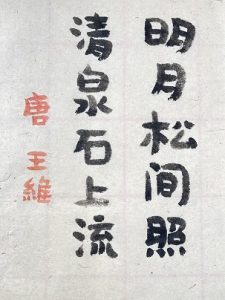 明月松间照
清泉石上流
唐 王維